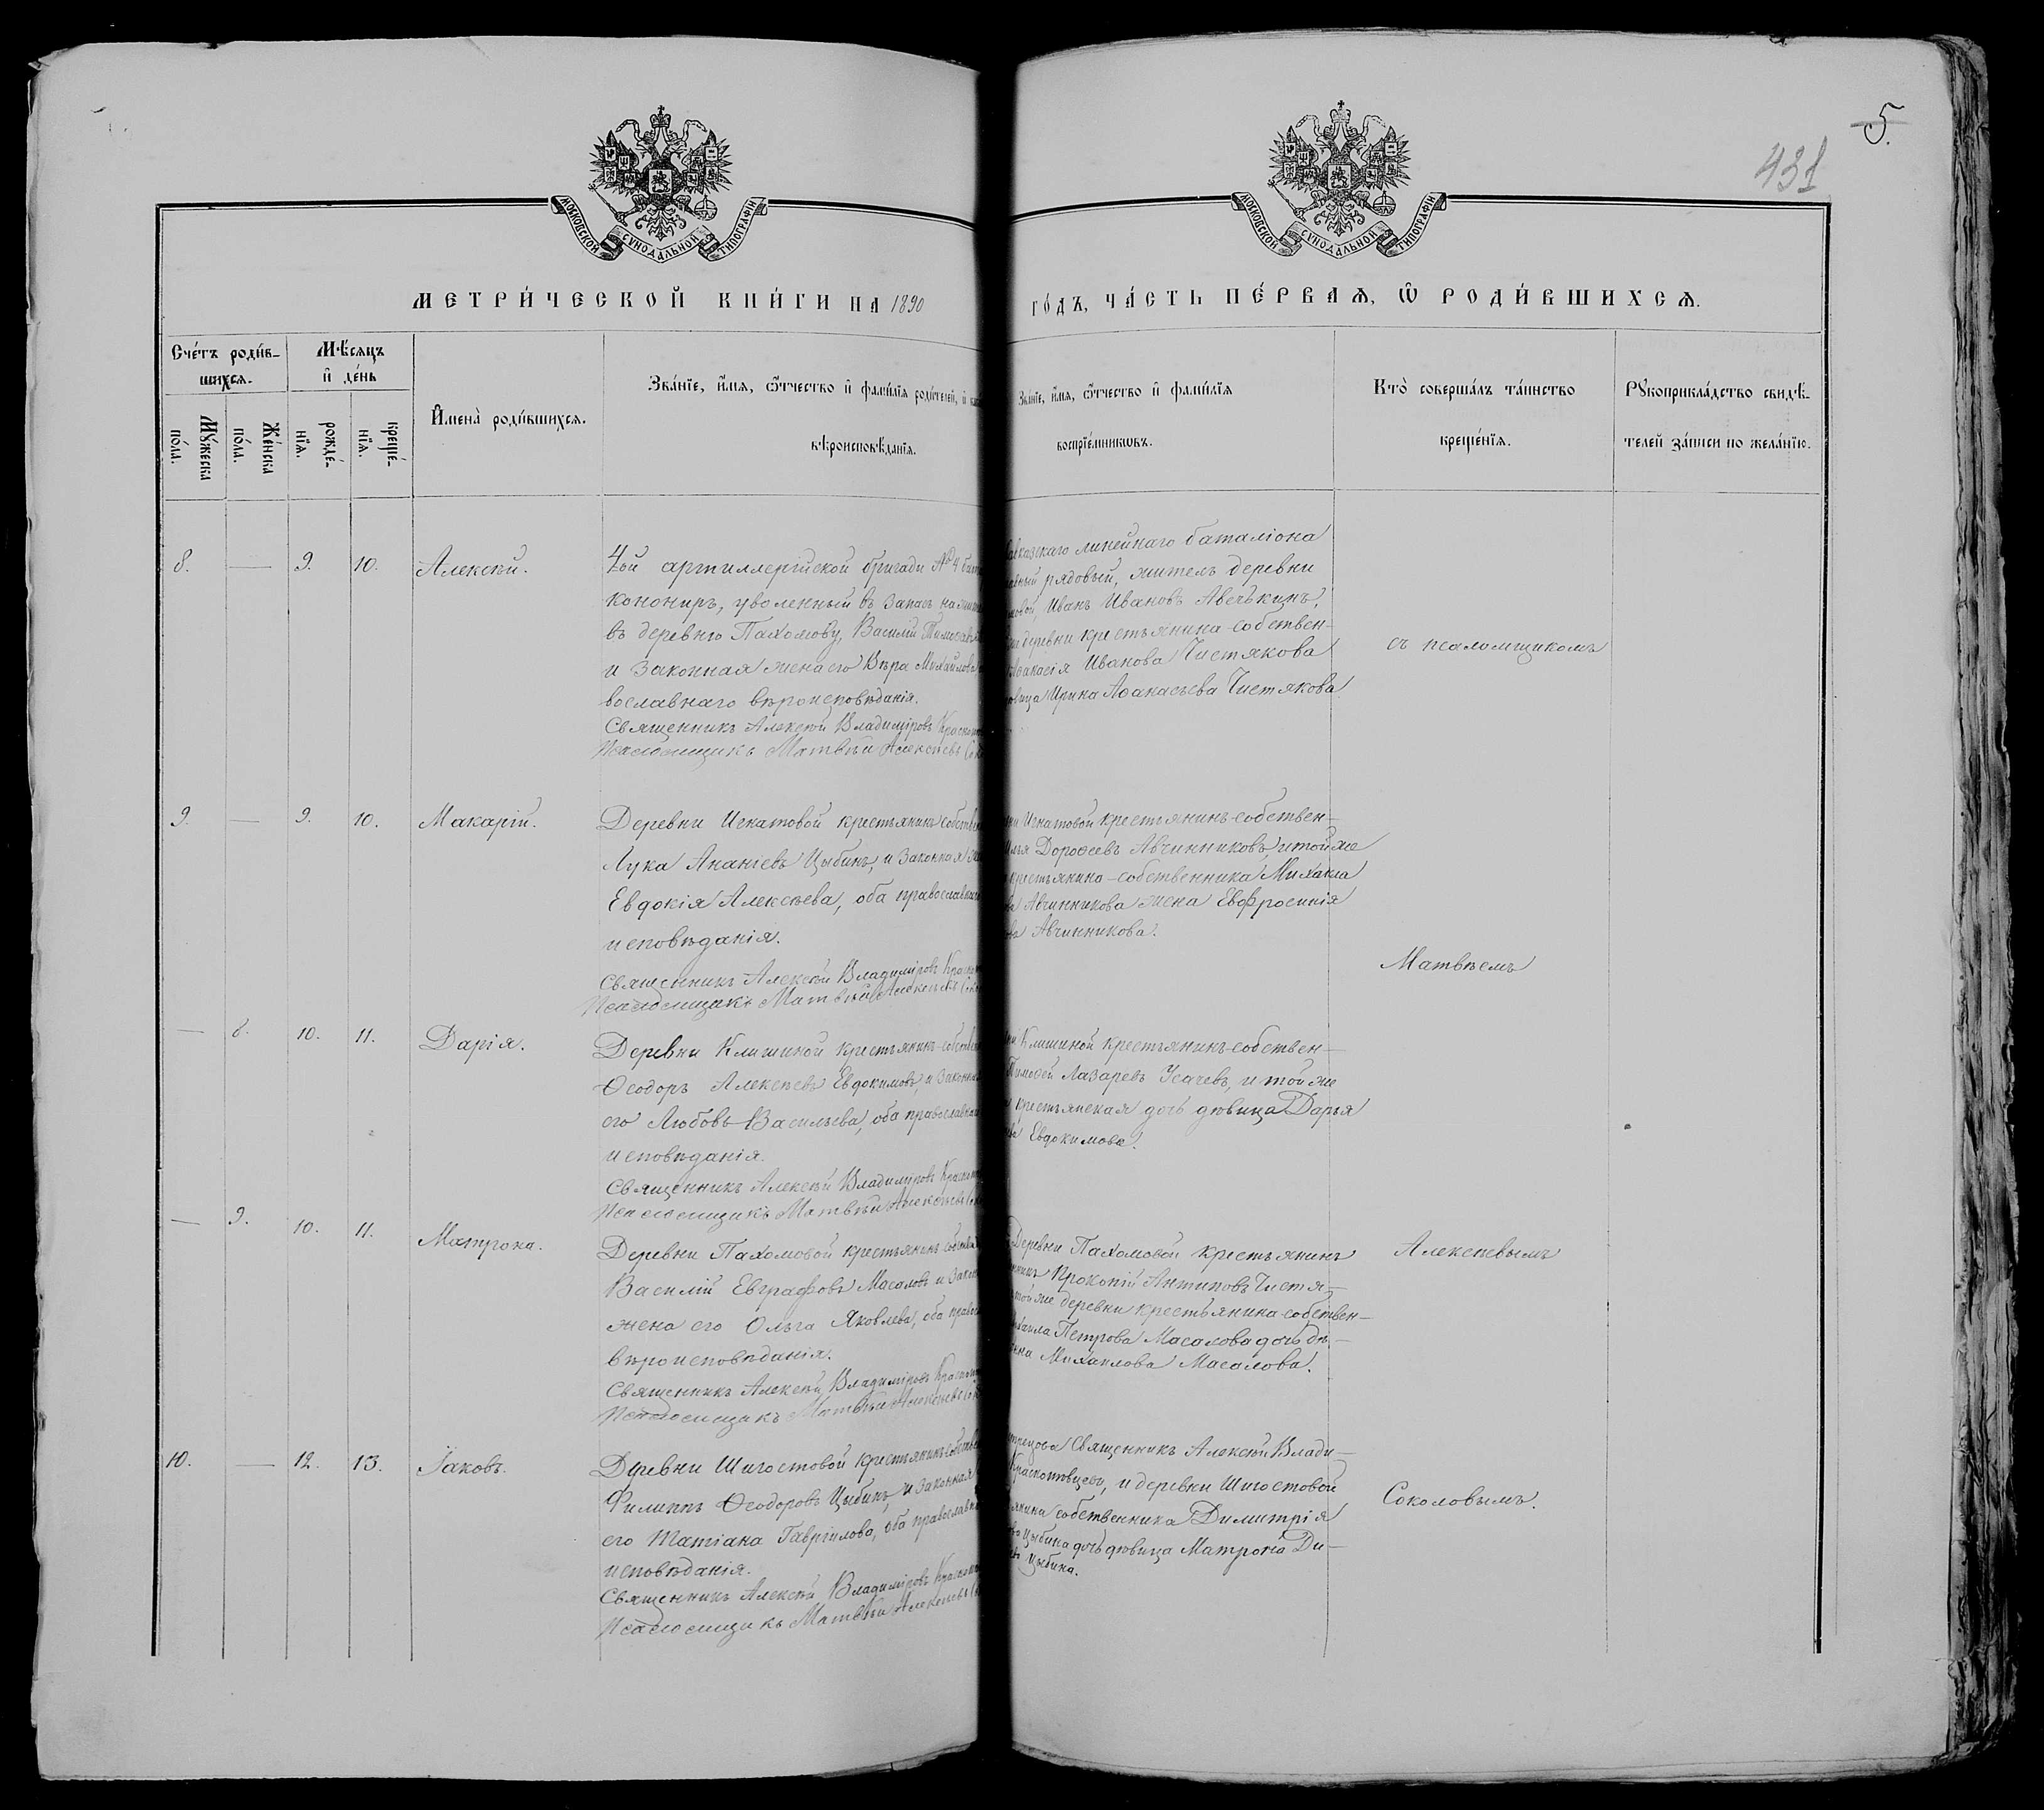 5.
431
МОСКОВСКОЙ СѴНОДАЛЬНОЙ ТИПОГРАФІИ
МОСКОВСКОЙ СѴНОДАЛЬНОЙ ТИПОГРАФІИ
МЕТРИ́ЧЕСКОЙ КНИ́ГИ НА 1890
ГО́ДЪ, ЧА́СТЬ ПЕ́РВАѦ, Ѿ РОДИ́ВШИХСѦ.
Сче́тъ роди́в-
шихсѧ.
Мꙋ́жеска по́ла.
Же́нска по́ла.
Мѣ́сѧцъ
и҆ де́нь
рожде́-нїѧ.
креще́-нїѧ.
И҆мена̀ роди́вшихсѧ.
Зва́нїе, и҆́мѧ, ѻ҆́тчество и҆ фамн́лїѧ роди́телей, и҆
вѣроисповѣ́данїѧ.
Зва́нїе, и҆́мѧ, ѻ҆́тчество и҆ фами́лїѧ
воспрїе́мникѡвъ.
Кто̀ соверша́лъ та́инство
креще́нїѧ.
Рꙋкоприкла́дство свидѣ́-
телей за́писи по жела́нїю.
8. — 9. 10. Алексѣй.
4ой артиллерійской бригады № 4
конониръ, уволенный въ запасъ
въ деревню Пахомову, Василій
и законная жена его Вѣра
вославнаго вѣроисповѣданія.
Священникъ Алексѣй Владиміровъ
Псаломщикъ Матвѣй Алексѣевъ
линейнаго баталіона
рядовый, житель деревни
Иванъ Ивановъ Авечькинъ,
деревни крестьянина-собствен-
Иванова Чистякова
Ирина Аѳанасьева Чистякова
съ псаломщикомъ
9. — 9. 10. Макарій.
Деревни Игнатовой крестьянинъ
Лука Ананіевъ Цыбинъ, и законная
Евдокія Алексѣева, оба
исповѣданія.
Священникъ Алексѣй Владиміровъ
Псаломщикъ Матвѣй Алексѣевъ
Игнатовой крестьянинъ-собствен-
Дороѳеевъ Авчинниковъ, и той же
крестьянина-собственника Михаила
Авчинникова жена Евфросинія
Авчинникова.
Матвѣемъ
— 8. 10. 11. Дарія.
Деревни Клишиной крестьянинъ
Ѳеодоръ Алексѣевъ Евдокимовъ, и
его Любовь Васильева, оба
исповѣданія.
Священникъ Алексѣй Владиміровъ
Псаломщикъ Матвѣй Алексѣевъ
Клишиной крестьянинъ-собствен-
Тимоѳей Лазаревъ Усачевъ, и той же
крестьянская дочь дѣвица Дарья
Евдокимова.
— 9. 10. 11. Матрона.
Деревни Пахомовой крестьянинъ
Василій Евграфовъ Масаловъ и
жена его Ольга Яковлева, оба
вѣроисповѣданія.
Священникъ Алексѣй Владиміровъ
Псаломщикъ Матвѣй Алексѣевъ
Деревни Пахомовой крестьянинъ
Прокопій Антиповъ Чистя-
той же деревни крестьянина-собствен-
Петрова Масалова дочь дѣ-
Михаилова Масалова.
Алексѣевымъ
10. — 12. 13. Іаковъ.
Деревни Шигостовой крестьянинъ
Филиппъ Ѳеодоровъ Цыбинъ, и законная
его Татіана Гавріилова, оба
исповѣданія.
Священникъ Алексѣй Владиміровъ
Псаломщикъ Матвѣй Алексѣевъ
Священникъ Алексѣй Влади-
и деревни Шигостовой
собственника Димитрія
Цыбина дочь дѣвица Матрона Ди-
Цыбина.
Соколовымъ.